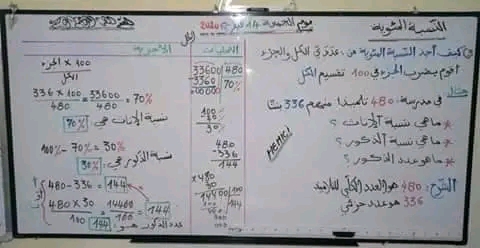 النسبة المئوية
كيف أجد النسبة المئوية من عددي الكل والجزء
أقوم بضرب الجزء في 100 تقسيم الكل
مثال
في مدرسة 480 تلميذا منهم 336 بنتا
* ما هي نسبة الإناث ؟
* ما هي نسبة الذكور ؟
* ما هو عدد الذكور ؟
الشرح: 480 هو العدد الكلي للتلاميذ
336 هو عدد جزئي
MEHKI
يوم الجمعة 14
العمليات
الكل
33600 480
3360 70%
00000
100
- 70
30
480
- 336
144
× 480
30
14400 100
144
الأجوبة
100 × الجزء
الكل
336 × 100 = 33600 = 70%
480 480
نسبة الإناث هي 70%
100% - 70 = 30%
نسبة الذكور هي 30%
480 - 336 = 144
480 × 30 = 14400 = 144
100 100
عدد الذكور هو: 144